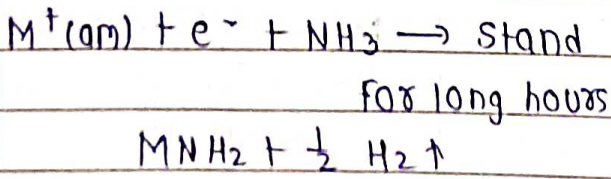 M⁺(am) + e⁻ + NH₃ → stand
for long hours
MNH₂ + ½ H₂ ↑